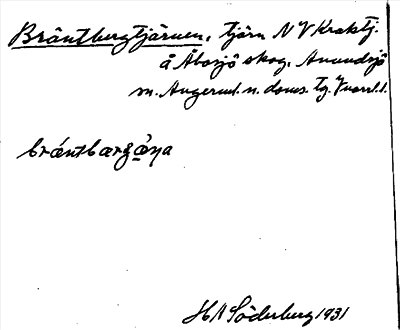 Bräntbergtjärnen, tjärn N V Kraktj.
å Åbosjö skog, Anundsjö
m. Ångerml. n. doms. tg. Vnorrl. l.
brǽntbærgæ̀ɳa
H A Söderberg 1931